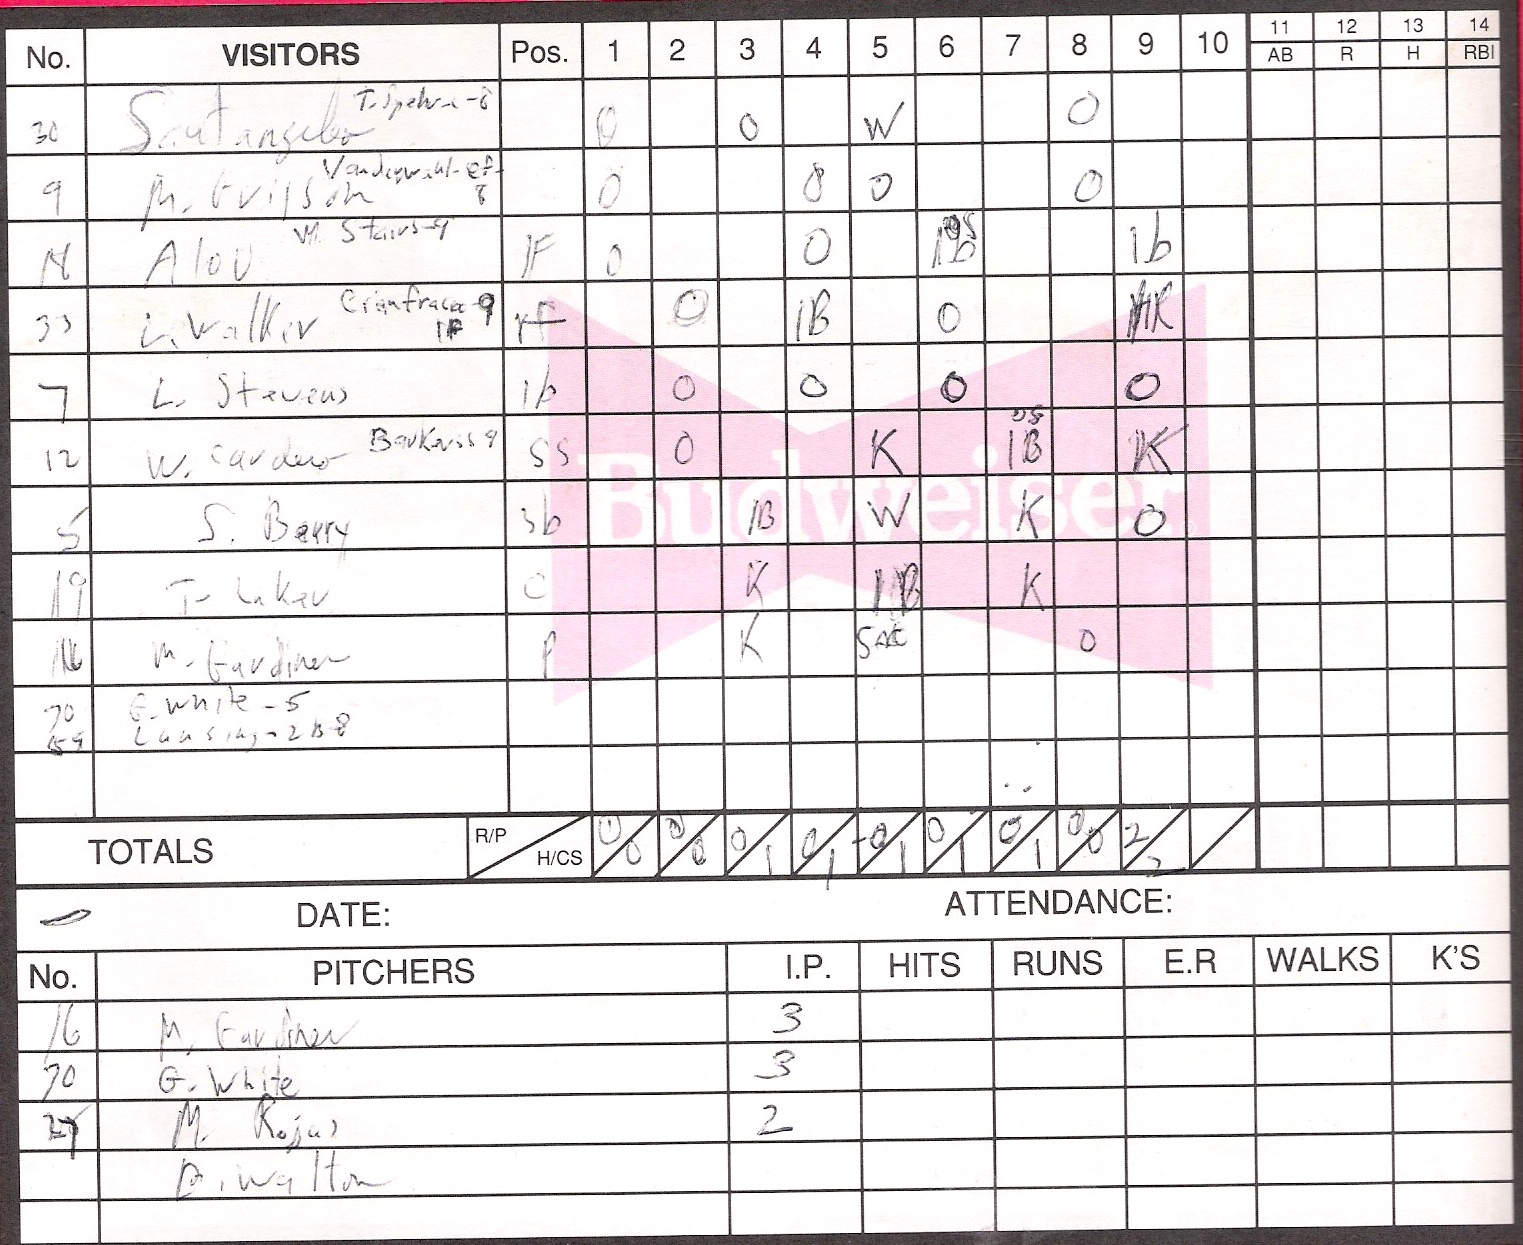 No. VISITORS Pos. 1 2 3 4 5 6 7 8 9 10 11 12 13 14
AB R H RBI
30 Santangelo -8 0 0 W 0
9 M. -8 0 8 0 0
Alou M. Stairs-9 lF 0 0 1b 1b
33 L. Walker 9 lF rf 0 1B 0 HR
7 L. Stevens 1b 0 0 0 0
12 W. Cordero SS 0 K 1B K
5 S. Berry 3b 1B W K 0
19 T. Laker C K 1B K
16 M. Gardiner P K SAC 0
70 G. White - 5
Lansing - 2B-8
Budweiser
TOTALS R/P H/CS 0 0 0 0 0 1 0 1 0 1 0 1 0 1 0 0 2 2
DATE: ATTENDANCE:
No. PITCHERS I.P. HITS RUNS E.R WALKS K'S
16 M. Gardiner 3
70 G. White 3
27 M. Rojas 2
walton